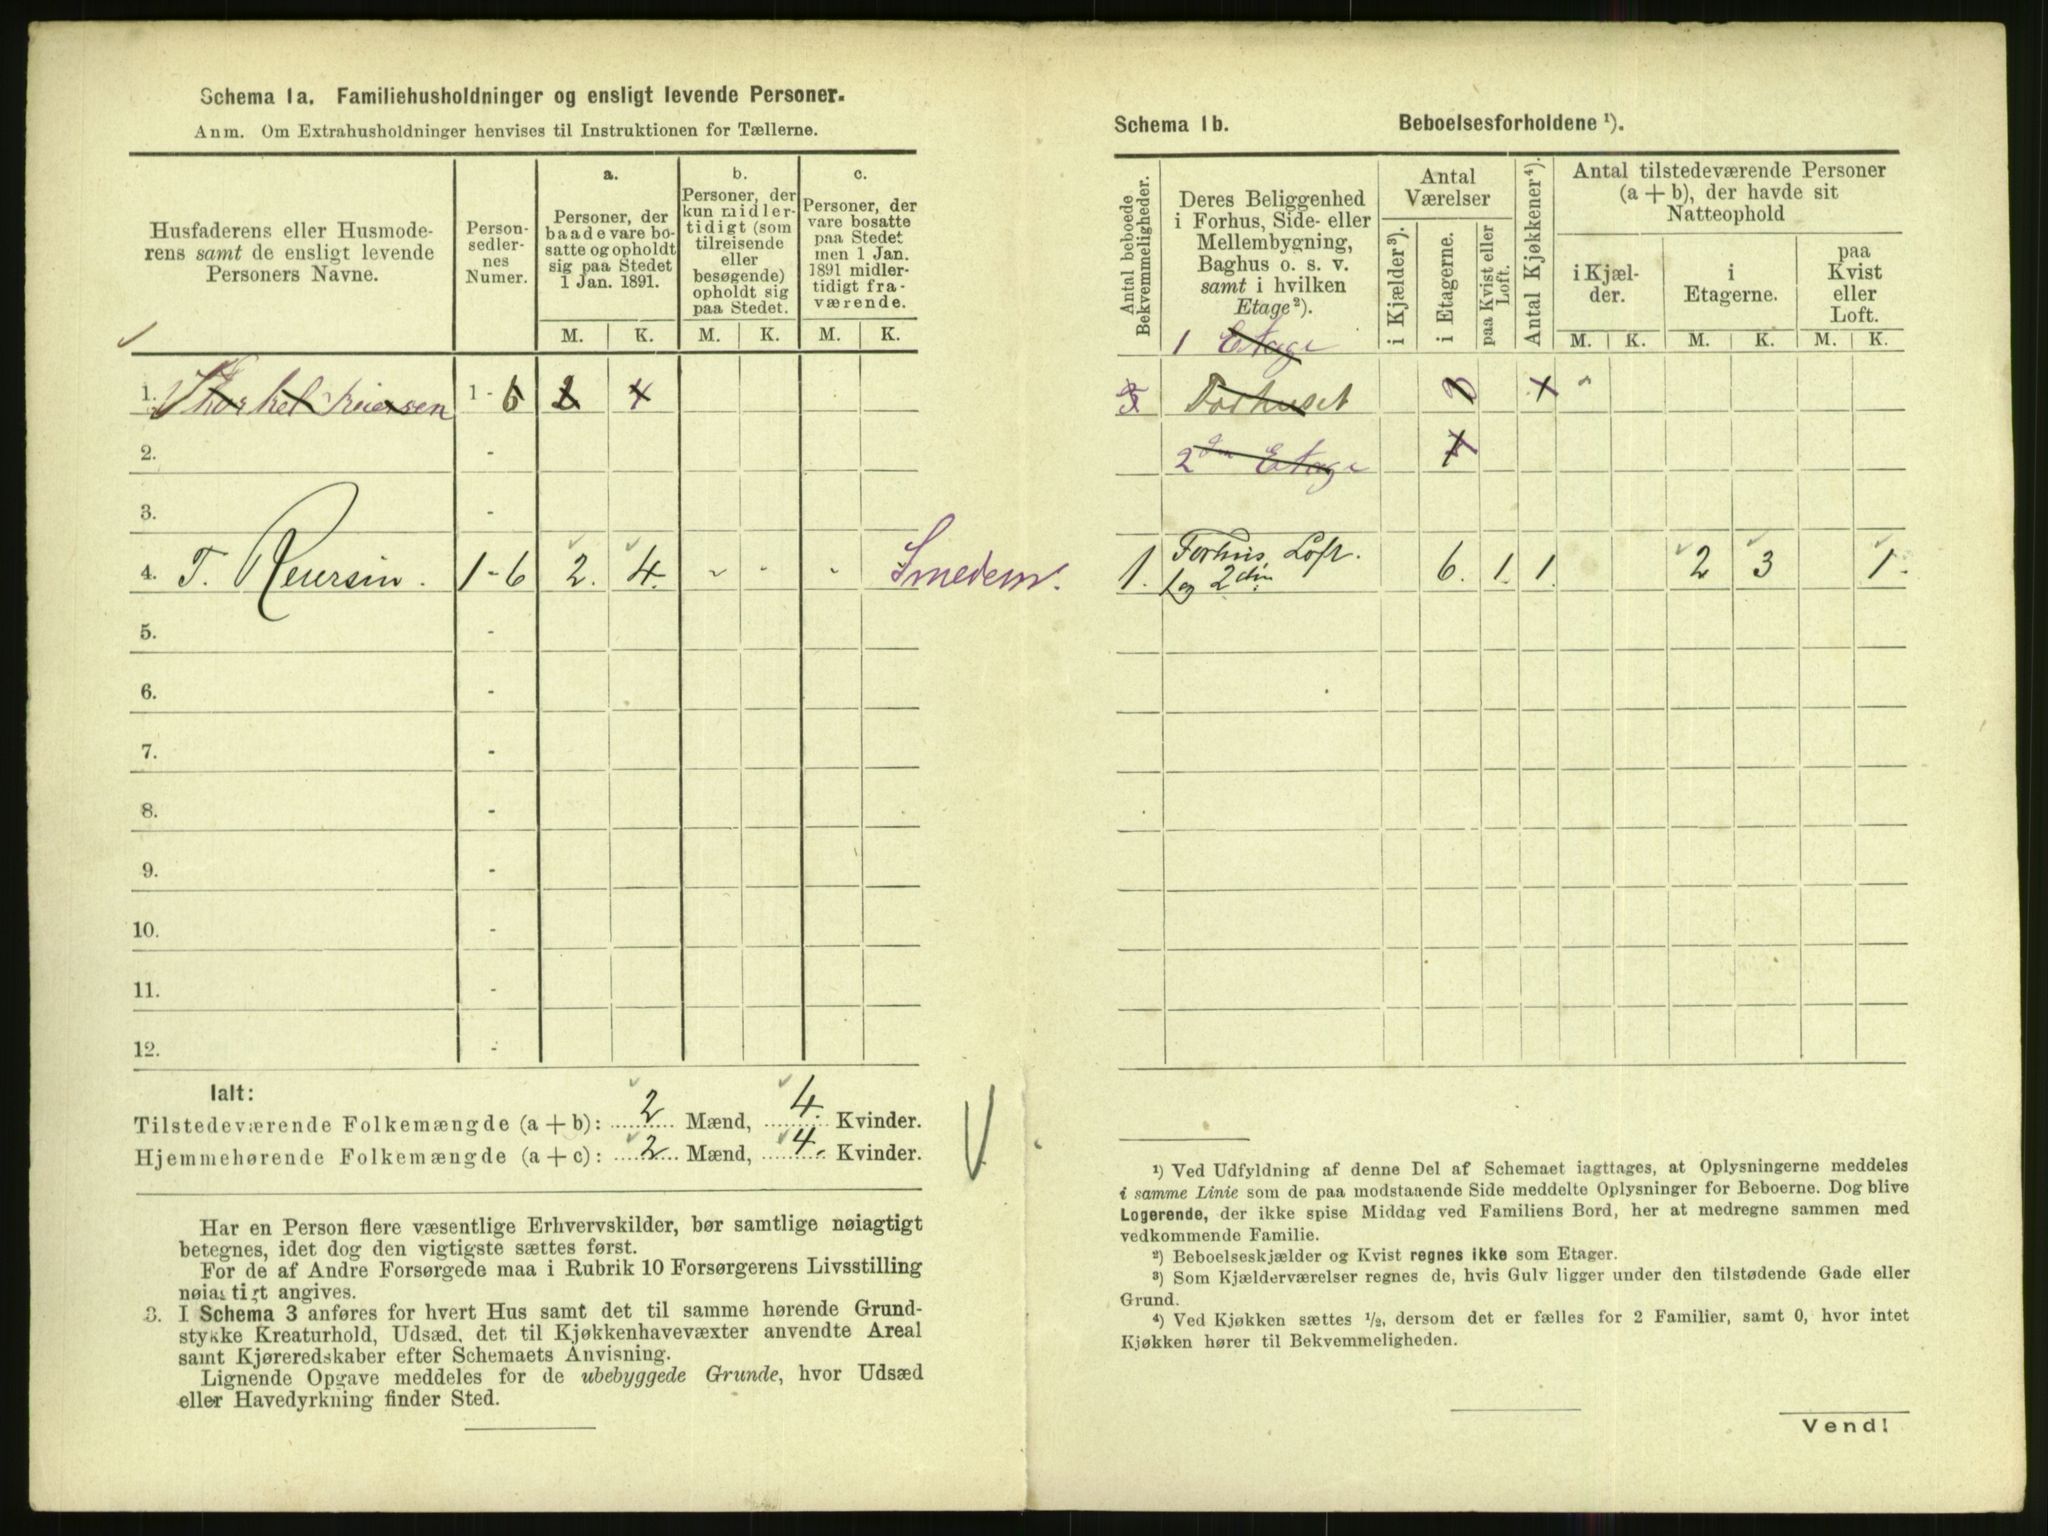 Schema 1a. Familiehusholdninger og ensligt levende Personer.
Anm. Om Extrahusholdninger henvises til Instruktionen for Tællerne.
Husfaderens eller Husmode-
rens samt de ensligt levende
Personers Navne.
Person-
sedler-
nes
Numer.
a.
Personer, der
baade vare bo-
satte og opholdt
sig paa Stedet
1 Jan. 1891.
b.
Personer, der
kun midler-
tidigt (som
tilreisende
eller
besøgende)
opholdt sig
paa Stedet.
c.
Personer, der
vare bosatte
paa Stedet
men 1 Jan.
1891 midler-
tidigt fra-
værende.
M. K. M. K. M. K.
1. 1 - 6 2 4
2. -
3. -
4. T. Reiersen. 1-6 2. 4. Smedem.
5. -
6. -
7. -
8. -
9. -
10. -
11. -
12. -
Ialt:
Tilstedeværende Folkemængde (a + b): 2 Mænd, 4. Kvinder.
Hjemmehørende Folkemængde (a + c): 2 Mænd, 4. Kvinder.
Har en Person flere væsentlige Erhvervskilder, bør samtlige nøiagtigt
betegnes, idet dog den vigtigste sættes først.
For de af Andre Forsørgede maa i Rubrik 10 Forsørgerens Livsstilling
nøiagtigt angives.
3. I Schema 3 anføres for hvert Hus samt det til samme hørende Grund-
stykke Kreaturhold, Udsæd, det til Kjøkkenhavevæxter anvendte Areal
samt Kjøreredskaber efter Schemaets Anvisning.
Lignende Opgave meddeles for de ubebyggede Grunde, hvor Udsæd
eller Havedyrkning finder Sted.
Schema 1b. Beboelsesforholdene ¹).
Antal beboede
Bekvemmeligheder.
Deres Beliggenhed
i Forhus, Side- eller
Mellembygning,
Baghus o. s. v.
samt i hvilken
Etage²).
Antal
Værelser
i Kjælder³).
i Etagerne.
paa Kvist eller
Loft.
Antal Kjøkkener⁴).
Antal tilstedeværende Personer
(a + b), der havde sit
Natteophold
i Kjæl-
der.
i
Etagerne.
paa
Kvist
eller
Loft.
M. K. M. K. M. K.
1 Etage
Forhuset
2den Etage
1. Forhus, Loft. 6. 1. 1. 2 3 1.
og 2den
¹) Ved Udfyldning af denne Del af Schemaet iagttages, at Oplysningerne meddeles
i samme Linie som de paa modstaaende Side meddelte Oplysninger for Beboerne. Dog blive
Logerende, der ikke spise Middag ved Familiens Bord, her at medregne sammen med
vedkommende Familie.
²) Beboelseskjælder og Kvist regnes ikke som Etager.
³) Som Kjælderværelser regnes de, hvis Gulv ligger under den tilstødende Gade eller
Grund.
⁴) Ved Kjøkken sættes ½, dersom det er fælles for 2 Familier, samt 0, hvor intet
Kjøkken hører til Bekvemmeligheden.
Vend!